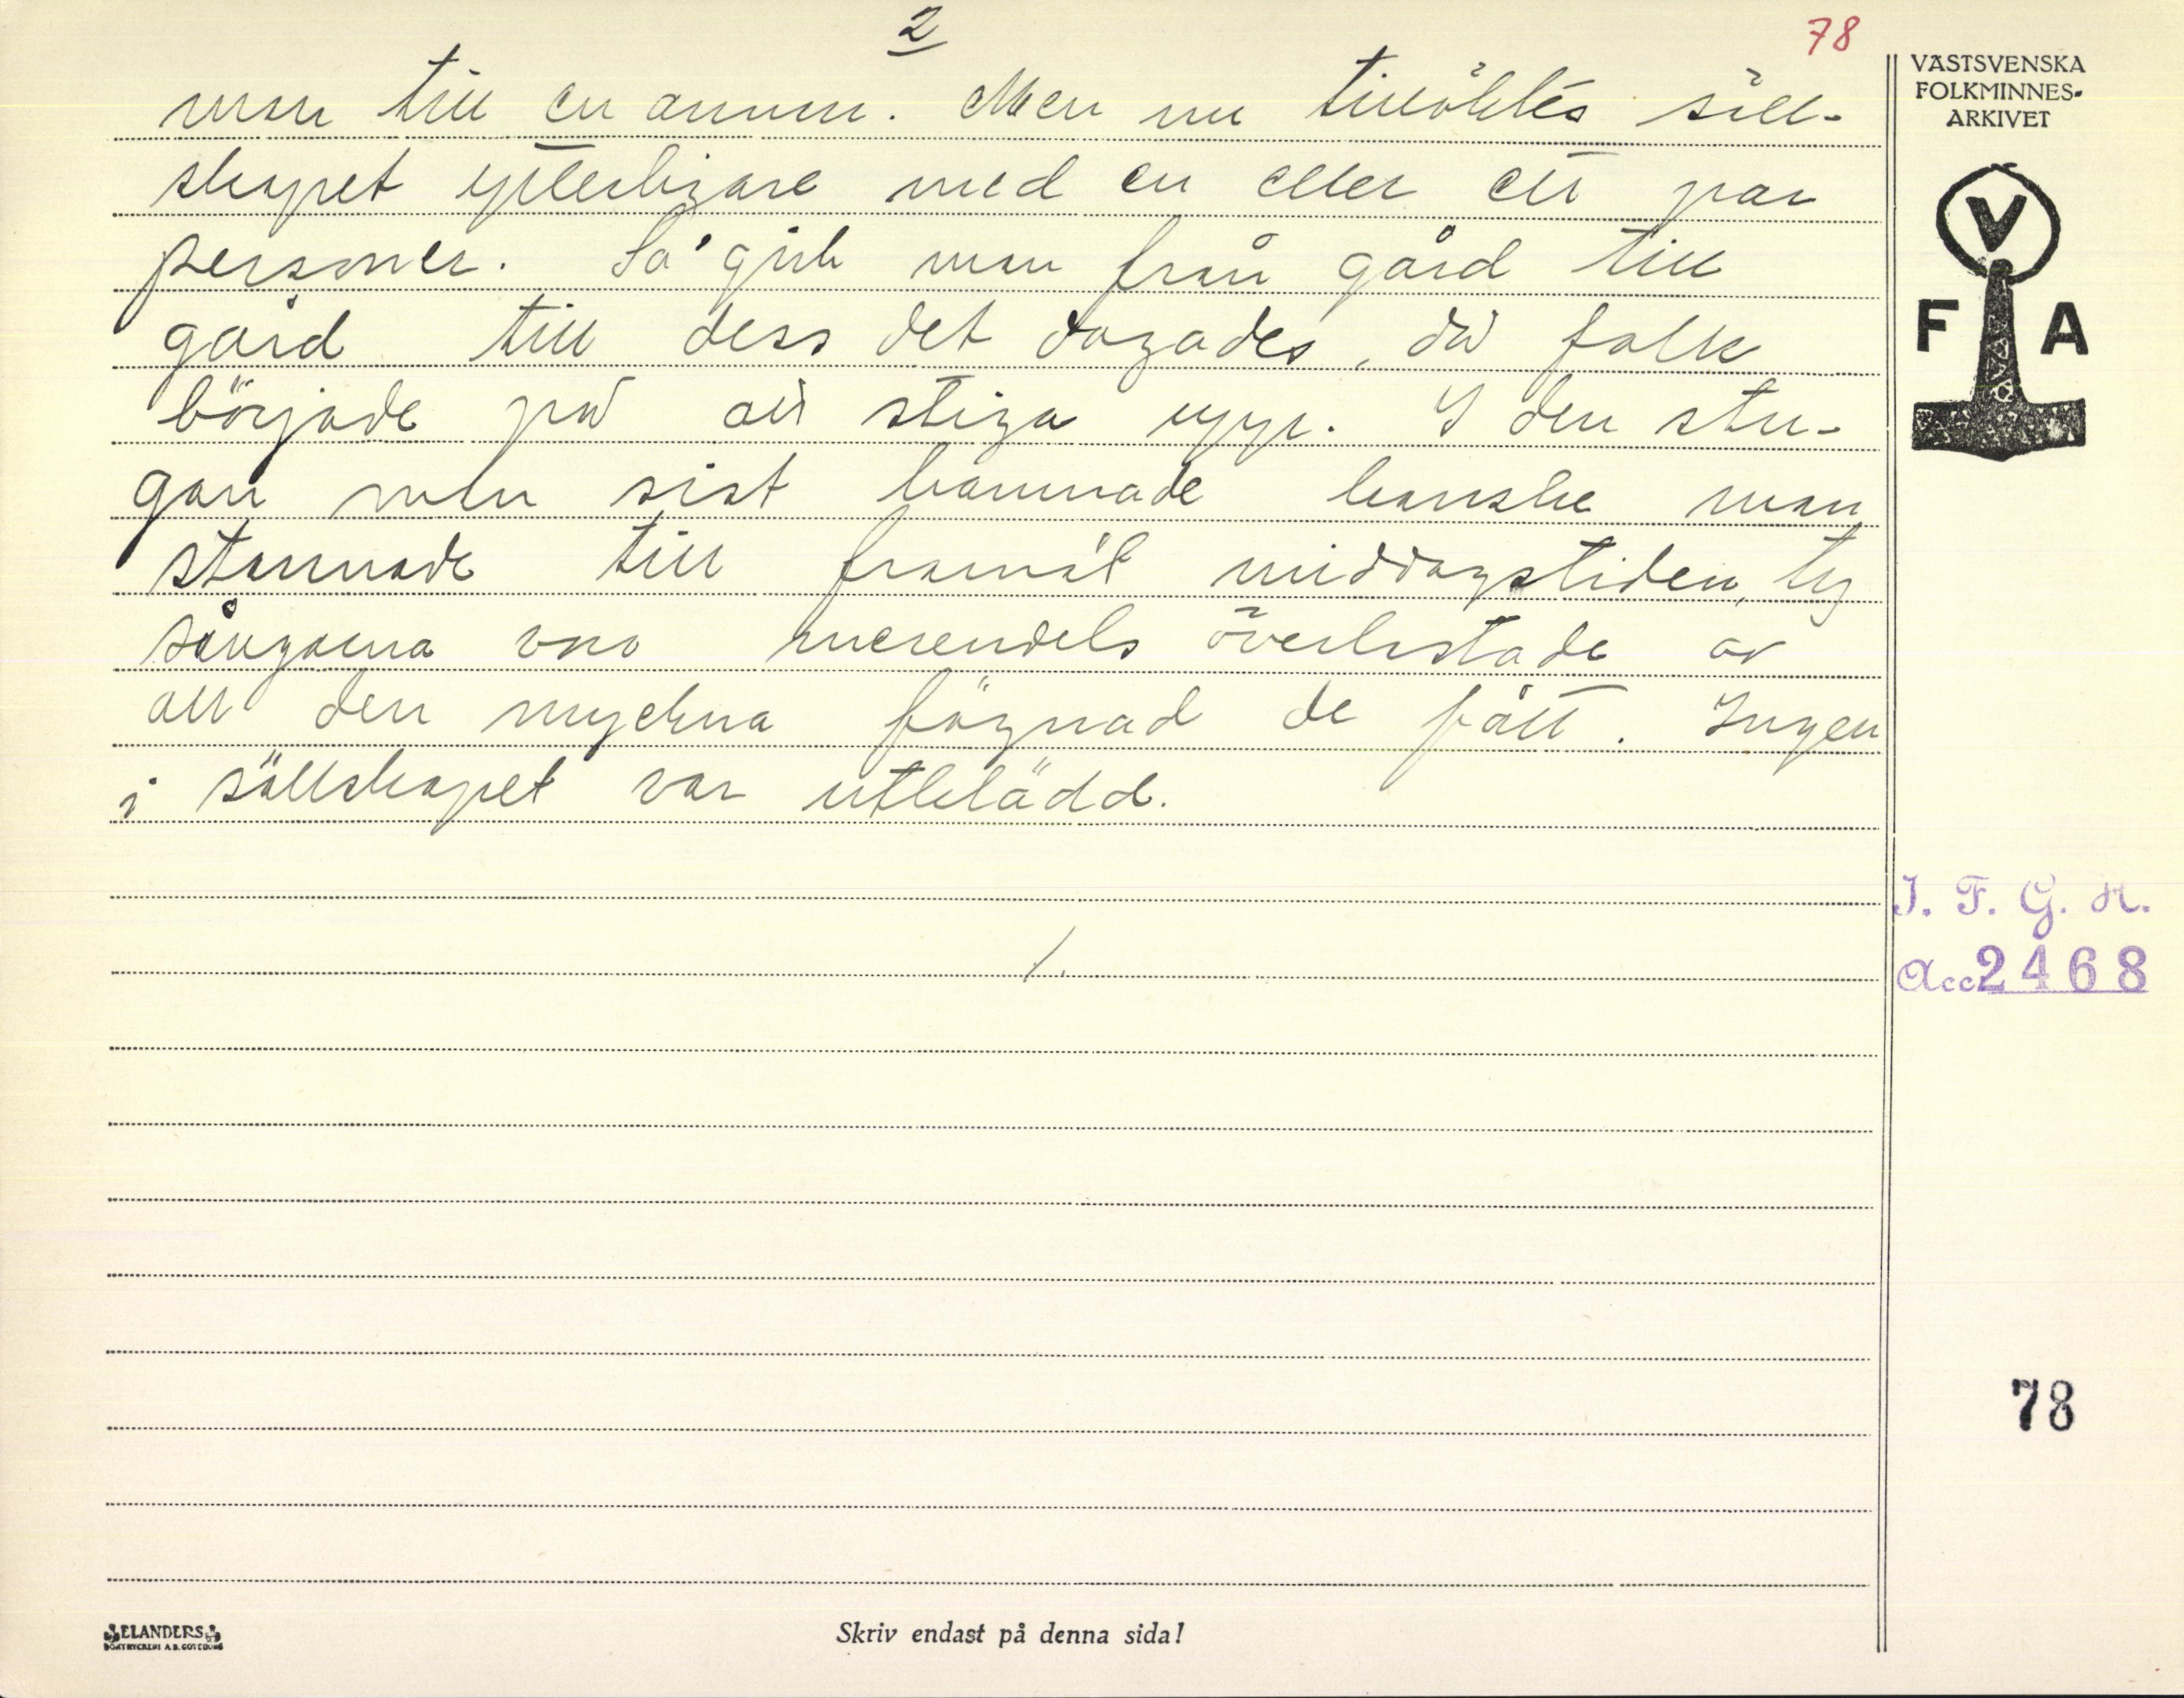 2
78
man till en annan. Men nu tillöktes säll-
skapet ytterligare med en eller ett par
personer. Så gick man från gård till
gård till dess det dagades, då folk
började på att stiga upp. I den stu-
gan man sist hamnade kanske man
stannade till framåt middagstiden, ty
sångarna voro merendels överlastade av
all den myckna fägnad de fått. Ingen
i sällskapet var utklädd.
/.
VÄSTSVENSKA
FOLKMINNES-
ARKIVET
V
F A
I. F. G. H.
Acc 2468
78
ELANDERS
BOKTRYCKERI A.B. GÖTEBORG
Skriv endast på denna sida!